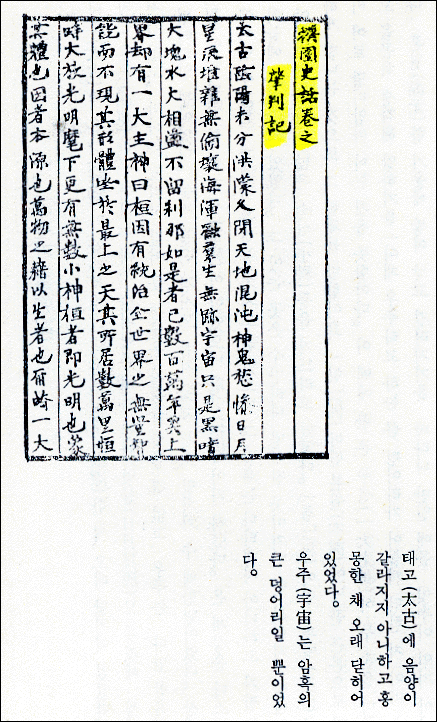 揆園史話卷之
肇判記
太古陰陽未分洪濛久閉天地混沌神鬼愁慘日月
星辰堆雜無倫壤海渾瀜羣生無跡宇宙只是黑暗
大塊水火相盪不留刹那如是者已數百萬年矣上
界却有一大主神曰桓因有統治全世界之無量智
能而不現其形體坐於最上之天其所居數萬里恒
時大放光明麾下更有無數小神桓者即光明也象
其體也因者本源也萬物之藉以生者也一大
태고(太古)에 음양이
갈라지지 아니하고 홍
몽한 채 오래 닫히어
있었다.
우주(宇宙)는 암흑의
큰 덩어리일 뿐이었
다.